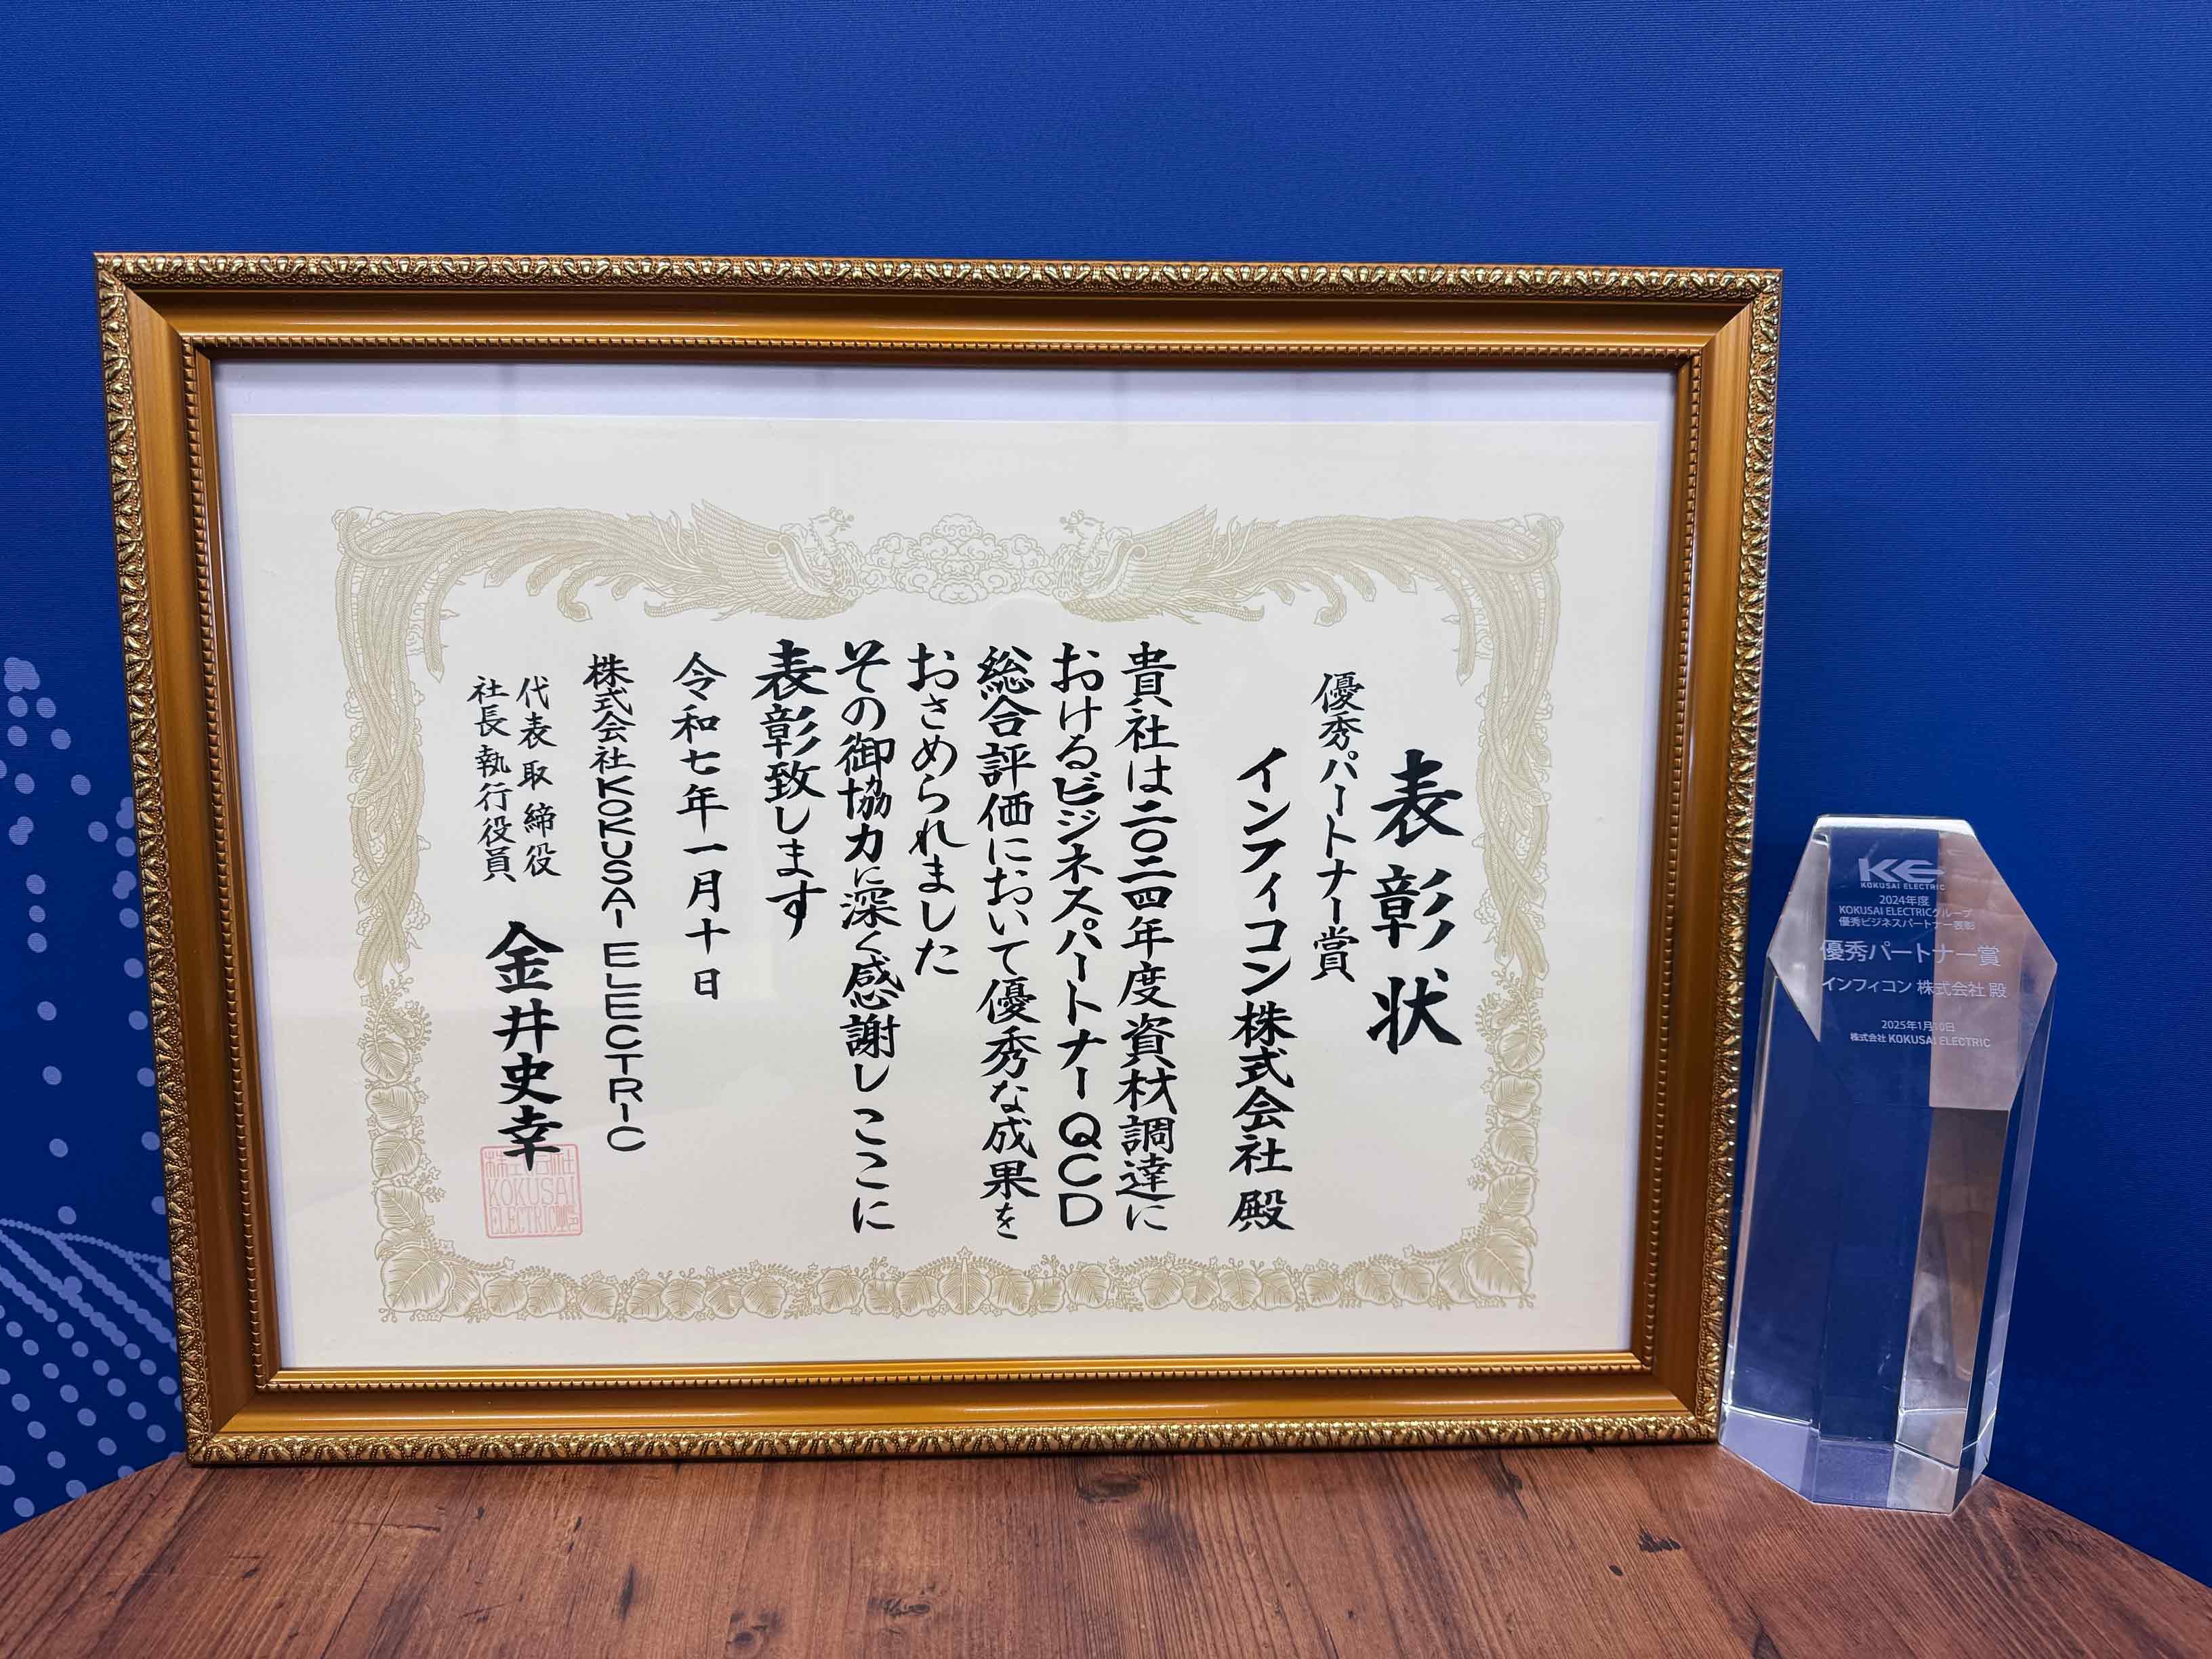 表彰状
優秀パートナー賞
インフィコン株式会社 殿
貴社は二〇二四年度資材調達に
おけるビジネスパートナーQCD
総合評価において優秀な成果を
おさめられました
その御協力に深く感謝しここに
表彰致します
令和七年一月十日
株式会社KOKUSAI ELECTRIC
代表取締役
社長執行役員
金井史幸
KOKUSAI
ELECTRIC
KE
KOKUSAI ELECTRIC
2024年度
KOKUSAI ELECTRICグループ
優秀ビジネスパートナー表彰
優秀パートナー賞
インフィコン 株式会社 殿
2025年1月10日
株式会社 KOKUSAI ELECTRIC